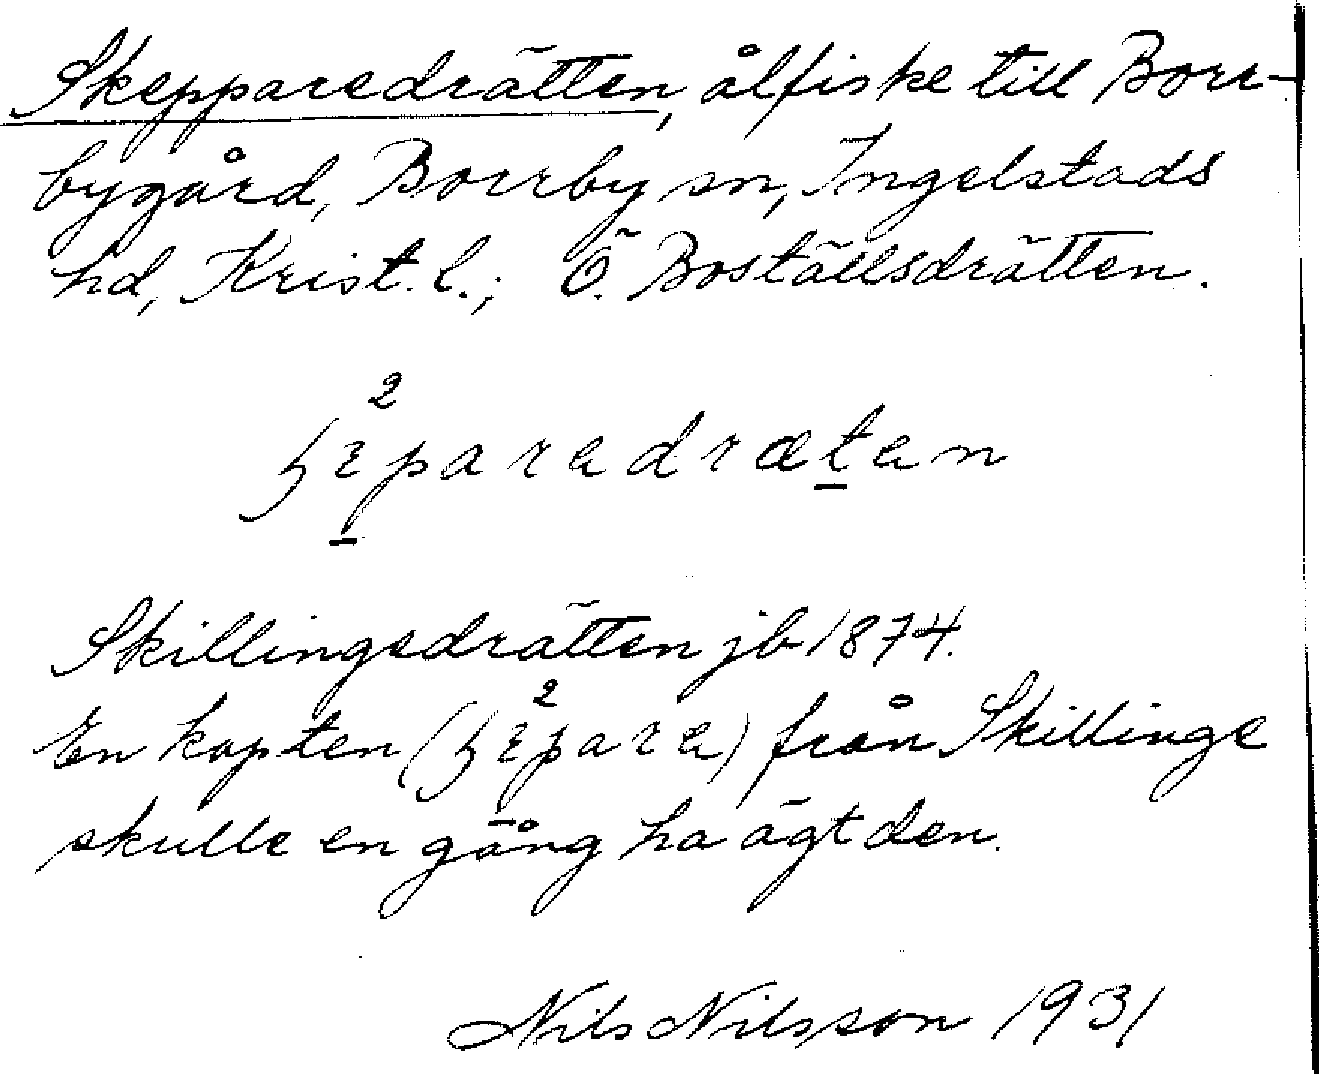 Skepparedrätten, ålfiske till Borr-
bygård, Borrby sn, Ingelstads
hd, Krist. l.; Ö. Boställsdrätten.
Skillingedrätten jb 1874.
En kapten från Skillinge
skulle en gång ha ägt den.
Nils Nilsson 1931